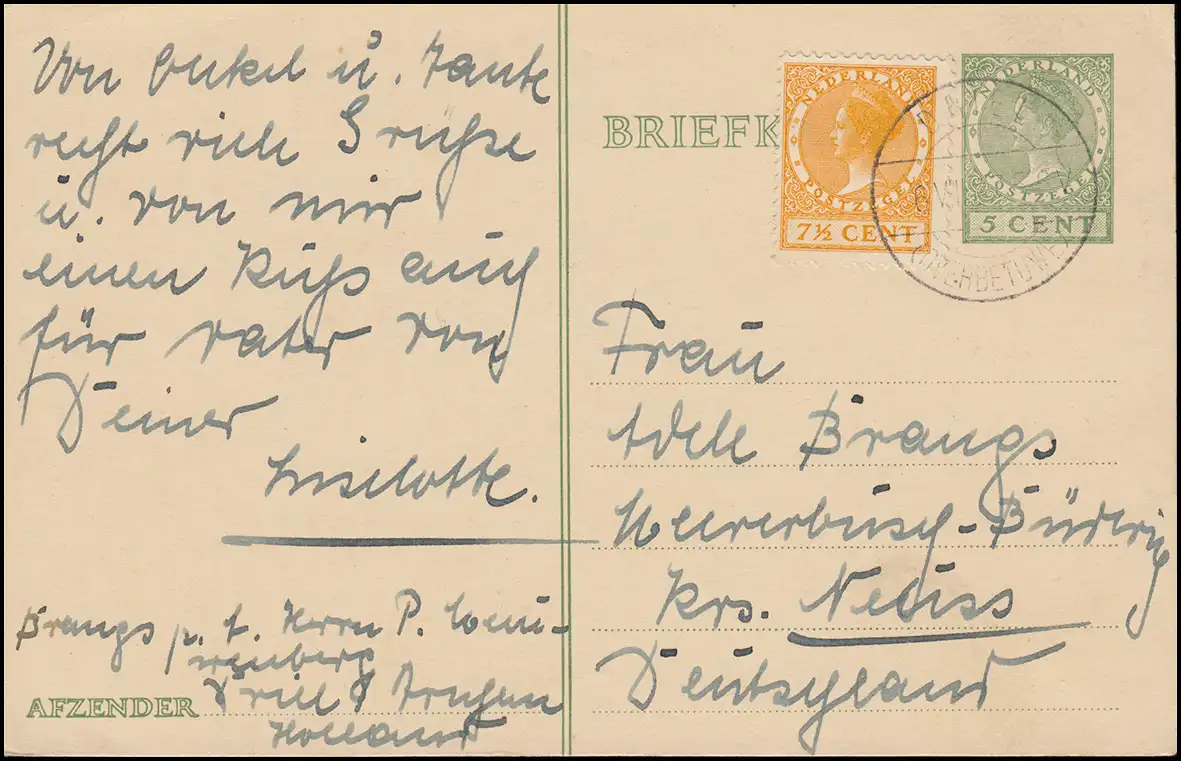 Von Onkel u. Tante
recht viele Grüße
u. von mir
einen Kuß auch
für Vater von
Deiner
Liselotte.
Brangs p. t. Herrn P.
Driel
Holland
AFZENDER
BRIEFK
NEDERLAND
POSTZEGEL
7½ CENT
NEDERLAND
POSTZEGEL
5 CENT
Frau
Adele Brangs
Meererbusch-Büderich
Krs. Neuss
Deutschland